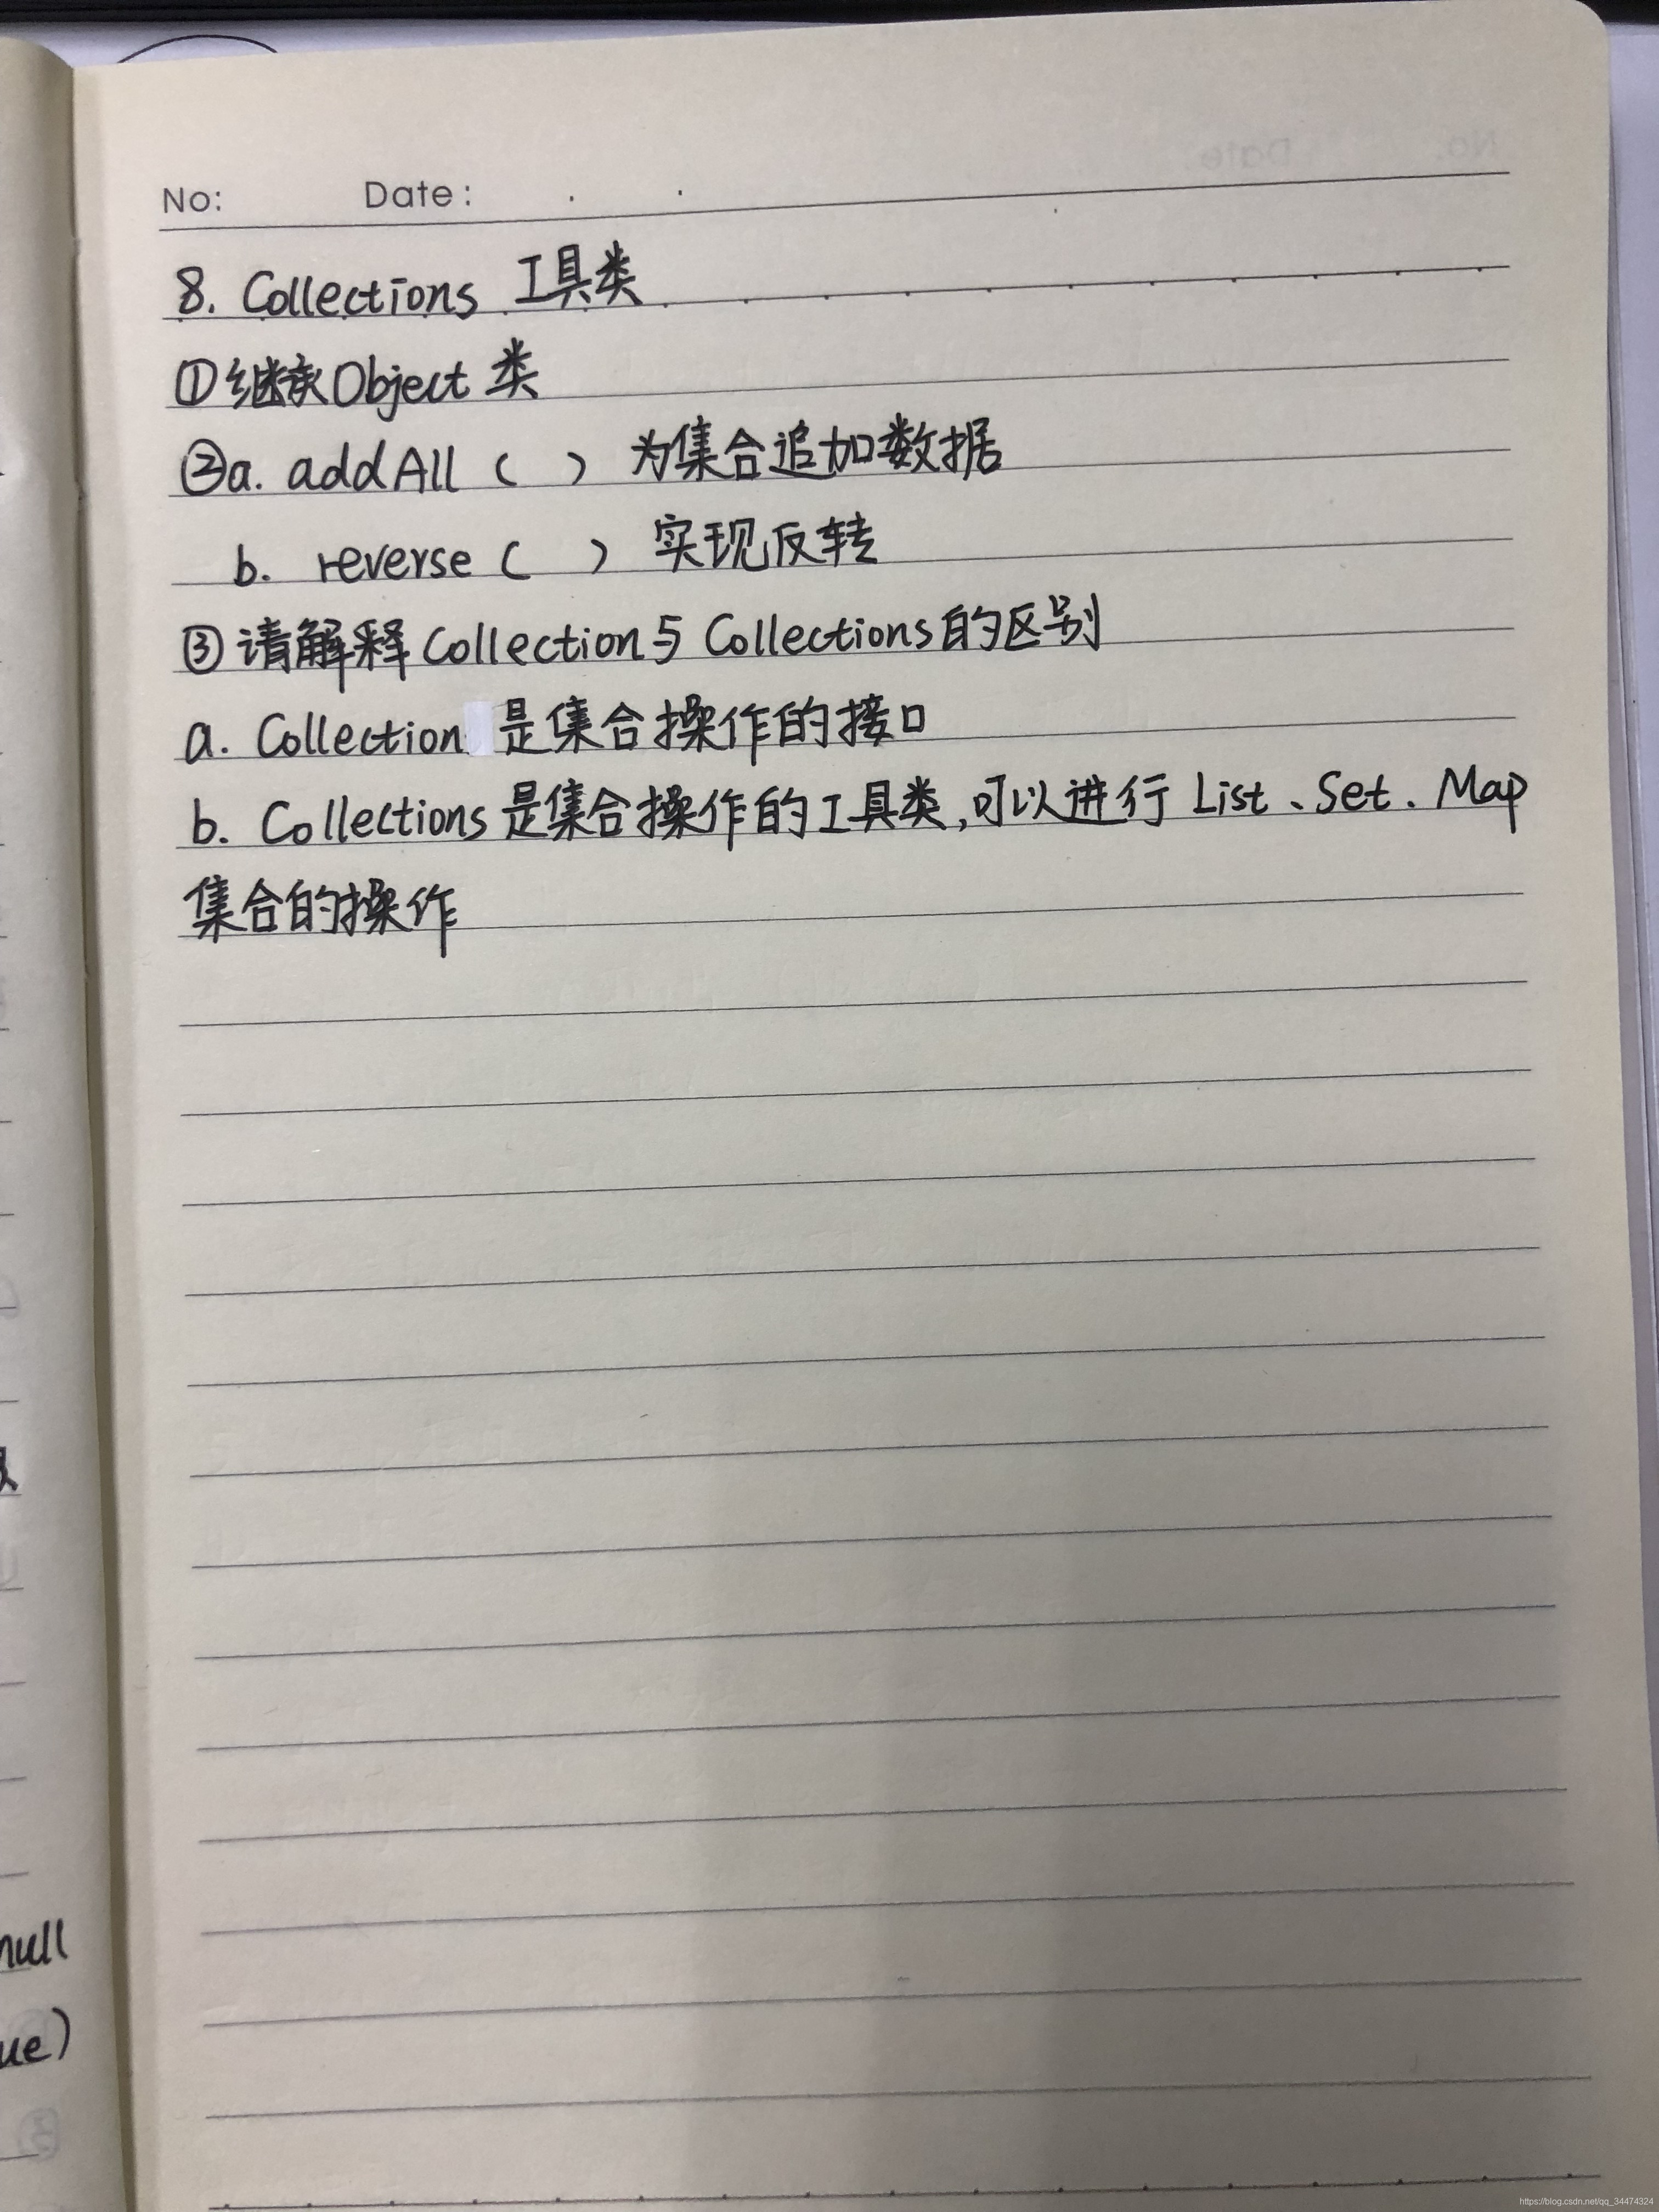 No: Date:
8. Collections 工具类
①继承Object 类
②a. addAll ( ) 为集合追加数据
b. reverse ( ) 实现反转
③请解释Collection与 Collections的区别
a. Collection 是集合操作的接口
b. Collections是集合操作的工具类,可以进行 List、Set、Map
集合的操作
null
ue)
https://blog.csdn.net/qq_34474324